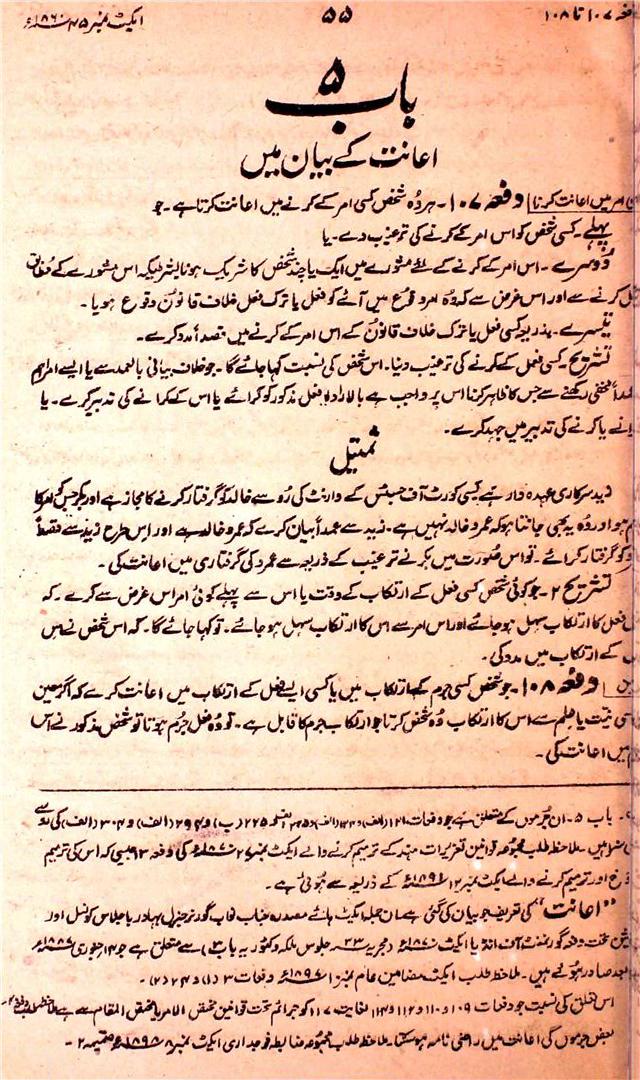 دفعہ ۱۰۷ تا ۱۰۸ ۵۵ ایکٹ نمبر ۴۵ ۱۸۶۰ء
باب ۵
اعانت کے بیان میں
امر میں اعانت کرنا دفعہ ۱۰۷۔ ہر وہ شخص کسی امر کے کرنے میں اعانت کرتا ہے۔ جو
پہلے۔ کسی شخص کو اس امر کے کرنے کی ترغیب دے۔ یا
دوسرے۔ اس امر کے کرنے کے لئے مشورے میں ایک یا چند شخص کا شریک ہو بشرطیکہ اس مشورے کے مطابق
کرنے سے اور اس غرض سے کہ وہ امر وقوع میں آئے کو فعل یا ترک فعل خلاف قانون وقوع ہو یا۔
تیسرے۔ بذریعہ کسی فعل یا ترک خلاف قانون کے اس امر کے کرنے میں قصداً مدد کرے۔
تشریح۔ کسی فعل کے کرنے کی ترغیب دینا۔ اس شخص کی نسبت کہا جائے گا۔ جو خلاف بیانی بالعمد سے یا ایسے امر اہم
مخفی رکھنے سے جس کا ظاہر کرنا اس پر واجب ہے بالارادہ فعل مذکور کو کرائے یا اس کے کرانے کی تدبیر کرے۔ یا
یا کرنے کی تدبیر میں جہد کرے۔
تمثیل
زید سرکاری عہدہ دار ہے کسی کورٹ آف جسٹس کے وارنٹ کی رو سے خالد کو گرفتار کرنے کا مجاز ہے اور بکر جس کو امر کا
ہو اور وہ یہ بھی جانتا ہو کہ عمرو خالد نہیں ہے۔ زید سے عمداً بیان کرے کہ عمرو خالد ہے اور اس طرح زید سے قصداً
کو گرفتار کرائے۔ تو اس صورت میں بکر نے ترغیب کے ذریعہ سے عمرو کی گرفتاری میں اعانت کی۔
تشریح ۲۔ جو کوئی شخص کسی فعل کے ارتکاب کے وقت یا اس سے پہلے کوئی امر اس غرض سے کرے۔ کہ
فعل کا ارتکاب سہل ہو جائے اور اس امر سے اس کا ارتکاب سہل ہو جائے۔ تو کہا جائے گا۔ کہ اس شخص نے اس
کے ارتکاب میں مدد کی۔
دفعہ ۱۰۸۔ جو شخص کسی جرم کے ارتکاب میں یا کسی ایسے فعل کے ارتکاب میں اعانت کرے کہ اگر معین
نیت یا علم سے اس کا ارتکاب وہ شخص کرتا جو ارتکاب جرم کا قابل ہے۔ تو وہ فعل جرم ہوتا تو شخص مذکور نے اس
میں اعانت کی۔
باب ۵۔ ان جرموں کے متعلق ہے جو دفعات ۱۲۱ (الف) و ۲۲۵ (ب) و ۲۹۴ (الف) و ۳۰۴ (الف) کی رو سے
ہیں۔ ملاحظہ طلب مجموعہ قوانین تعزیرات ہند کے ترمیم کرنے والے ایکٹ نمبر ۲۷ ۱۸۷۰ء کی دفعہ ۱۳ جیسی کہ اس کی ترمیم
اور ترمیم کرنے والے ایکٹ نمبر ۱۲ ۱۸۹۱ء کے ذریعہ سے ہوئی ہے۔
"اعانت" کی تعریف جو بیان کی گئی ہے ان جملہ ایکٹ ہائے مصدرہ جناب نواب گورنر جنرل بہادر باجلاس کونسل اور
تحت دفعہ گورنمنٹ آف انڈیا ایکٹ ۱۸۷۰ء (مجریہ ۳۳ جلوس ملکہ وکٹوریہ باب ۳) سے متعلق ہے جو ۱۴ جنوری ۱۸۸۷ء
صادر ہوئے ہیں۔ ملاحظہ طلب ایکٹ مضامین عام نمبر ۱۰ ۱۸۹۷ء دفعات ۳ (۱) و ۴ (۲)۔
اس تعلق کی نسبت جو دفعات ۱۰۹ و ۱۱۰ و ۱۱۲ و ۱۱۴ لغایت ۱۱۷ کو جرائم تحت قوانین مختص الامر یا مختص المقام سے ہے ملاحظہ طلب دفعہ ۴۰۔
بعض جرموں کی اعانت میں راضی نامہ ہو سکتا۔ ملاحظہ طلب مجموعہ ضابطہ فوجداری ایکٹ نمبر ۵ ۱۸۹۸ء ضمیمہ ۲۔